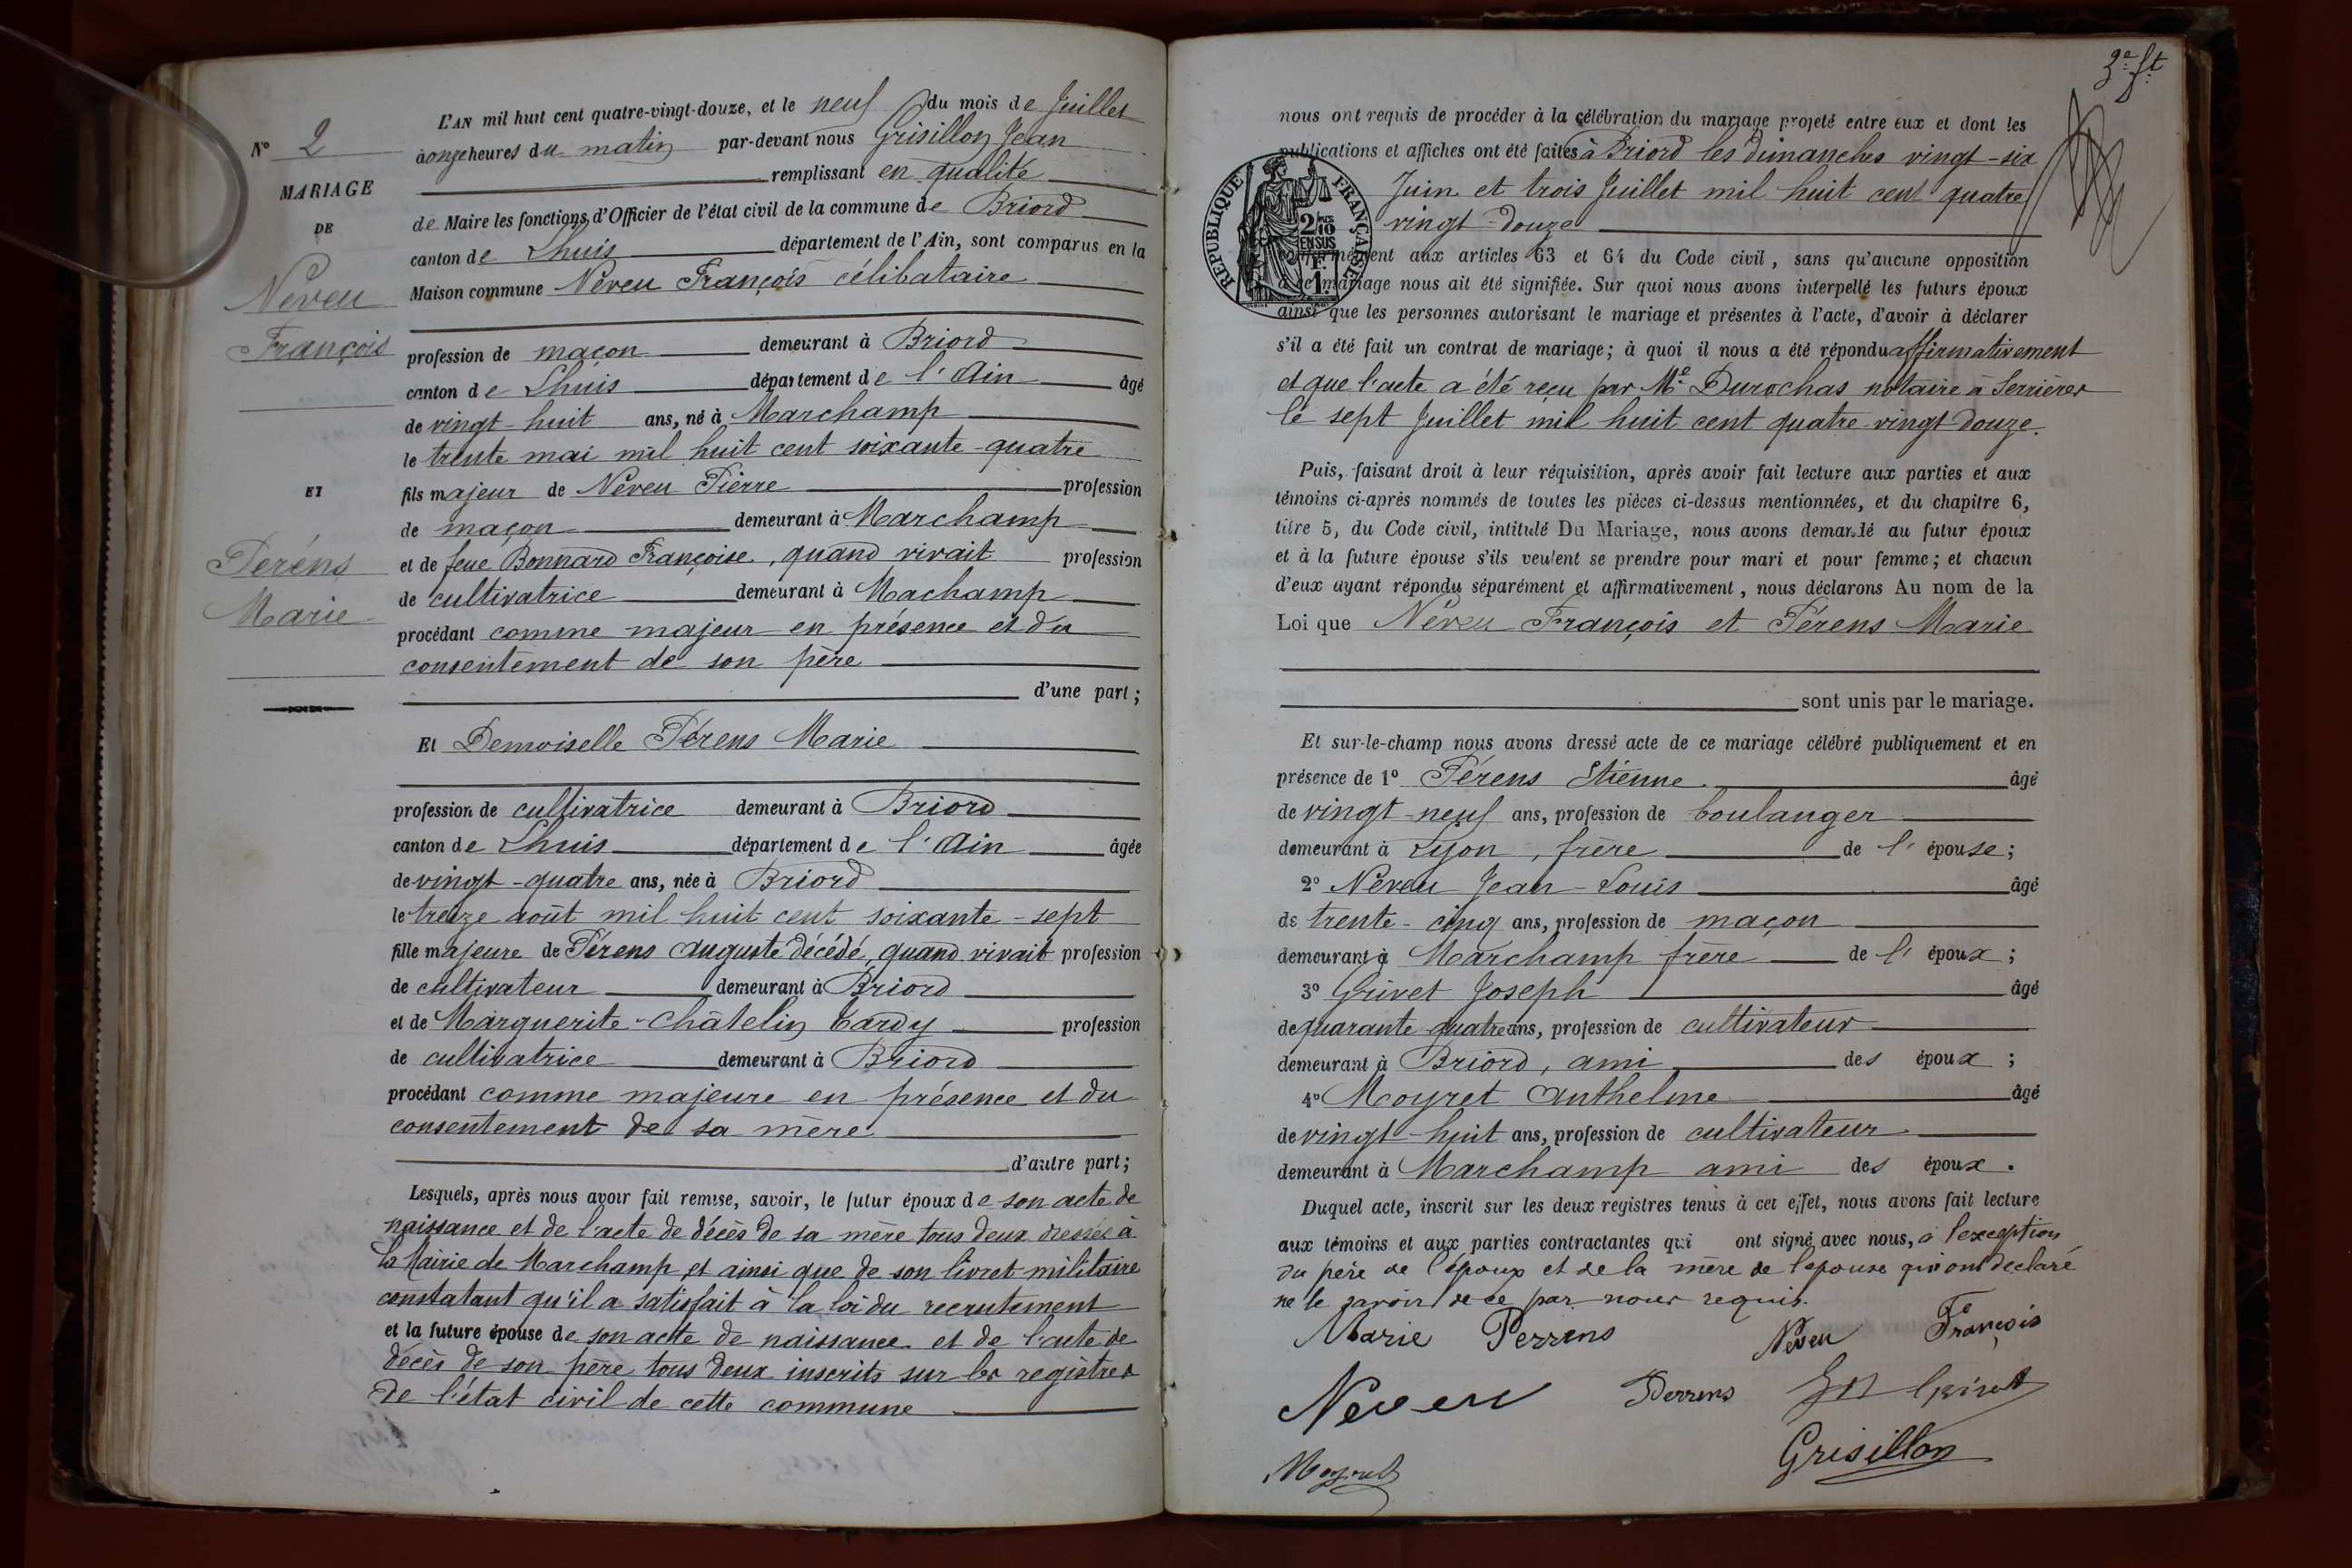 L'AN mil huit cent quatre-vingt-douze, et le neuf du mois de Juillet
à onze heures du matin par-devant nous Grisillon Jean
remplissant en qualité
de Maire les fonctions d'Officier de l'état civil de la commune de Briord
canton de Lhuis département de l'Ain, sont comparus en la
Maison commune Néveu François célibataire
profession de maçon demeurant à Briord
canton de Lhuis département de l'Ain âgé
de vingt-huit ans, né à Marchamp
le trente mai mil huit cent soixante-quatre
fils majeur de Néveu Pierre profession
de maçon demeurant à Marchamp
et de feue Bonnard Françoise, quand vivait profession
de cultivatrice demeurant à Machamp
procédant comme majeur en présence et du
consentement de son père
d'une part;
Et Demoiselle Pérens Marie
profession de cultivatrice demeurant à Briord
canton de Lhuis département de l'Ain âgée
de vingt-quatre ans, née à Briord
le treize août mil huit cent soixante-sept
fille majeure de Pérens Auguste décédé, quand vivait profession
de cultivateur demeurant à Briord
et de Marguerite Châtelin Cardy profession
de cultivatrice demeurant à Briord
procédant comme majeure en présence et du
consentement de sa mère
d'autre part;
Lesquels, après nous avoir fait remise, savoir, le futur époux de son acte de
naissance et de l'acte de décès de sa mère tous deux dressés à
la Mairie de Marchamp, et ainsi que de son livret militaire
constatant qu'il a satisfait à la loi du recrutement
et la future épouse de son acte de naissance et de l'acte de
décès de son père tous deux inscrits sur les registres
de l'état civil de cette commune
N° 2
MARIAGE
DE
Néveu
François
ET
Peréns
Marie
3e ft
nous ont requis de procéder à la célébration du mariage projeté entre eux et dont les
publications et affiches ont été faites à Briord les dimanches vingt-six
Juin et trois Juillet mil huit cent quatre
vingt-douze
conformément aux articles 63 et 64 du Code civil, sans qu'aucune opposition
à ce mariage nous ait été signifiée. Sur quoi nous avons interpellé les futurs époux
ainsi que les personnes autorisant le mariage et présentes à l'acte, d'avoir à déclarer
s'il a été fait un contrat de mariage; à quoi il nous a été répondu affirmativement
et que l'acte a été reçu par Me Durochas notaire à Serrières
le sept Juillet mil huit cent quatre-vingt douze.
Puis, faisant droit à leur réquisition, après avoir fait lecture aux parties et aux
témoins ci-après nommés de toutes les pièces ci-dessus mentionnées, et du chapitre 6,
titre 5, du Code civil, intitulé Du Mariage, nous avons demandé au futur époux
et à la future épouse s'ils veulent se prendre pour mari et pour femme; et chacun
d'eux ayant répondu séparément et affirmativement, nous déclarons Au nom de la
Loi que Néveu François et Pérens Marie
sont unis par le mariage.
Et sur-le-champ nous avons dressé acte de ce mariage célébré publiquement et en
présence de 1° Pérens Étienne âgé
de vingt-neuf ans, profession de boulanger
demeurant à Lyon, frère de l'épouse;
2° Néveu Jean-Louis âgé
de trente-cinq ans, profession de maçon
demeurant à Marchamp frère de l'époux;
3° Grivet Joseph âgé
de quarante quatre ans, profession de cultivateur
demeurant à Briord, ami des époux;
4° Moyret Anthelme âgé
de vingt-huit ans, profession de cultivateur
demeurant à Marchamp ami des époux.
Duquel acte, inscrit sur les deux registres tenus à cet effet, nous avons fait lecture
aux témoins et aux parties contractantes qui ont signé avec nous, à l'exception
du père de l'époux et de la mère de l'épouse qui ont déclaré
ne le savoir de ce par nous requis.
Marie Perrens Neveu François
Neveu Perrens Grivet
Moyret Grisillon
RÉPUBLIQUE FRANÇAISE
2/10
EN SUS
1 F.